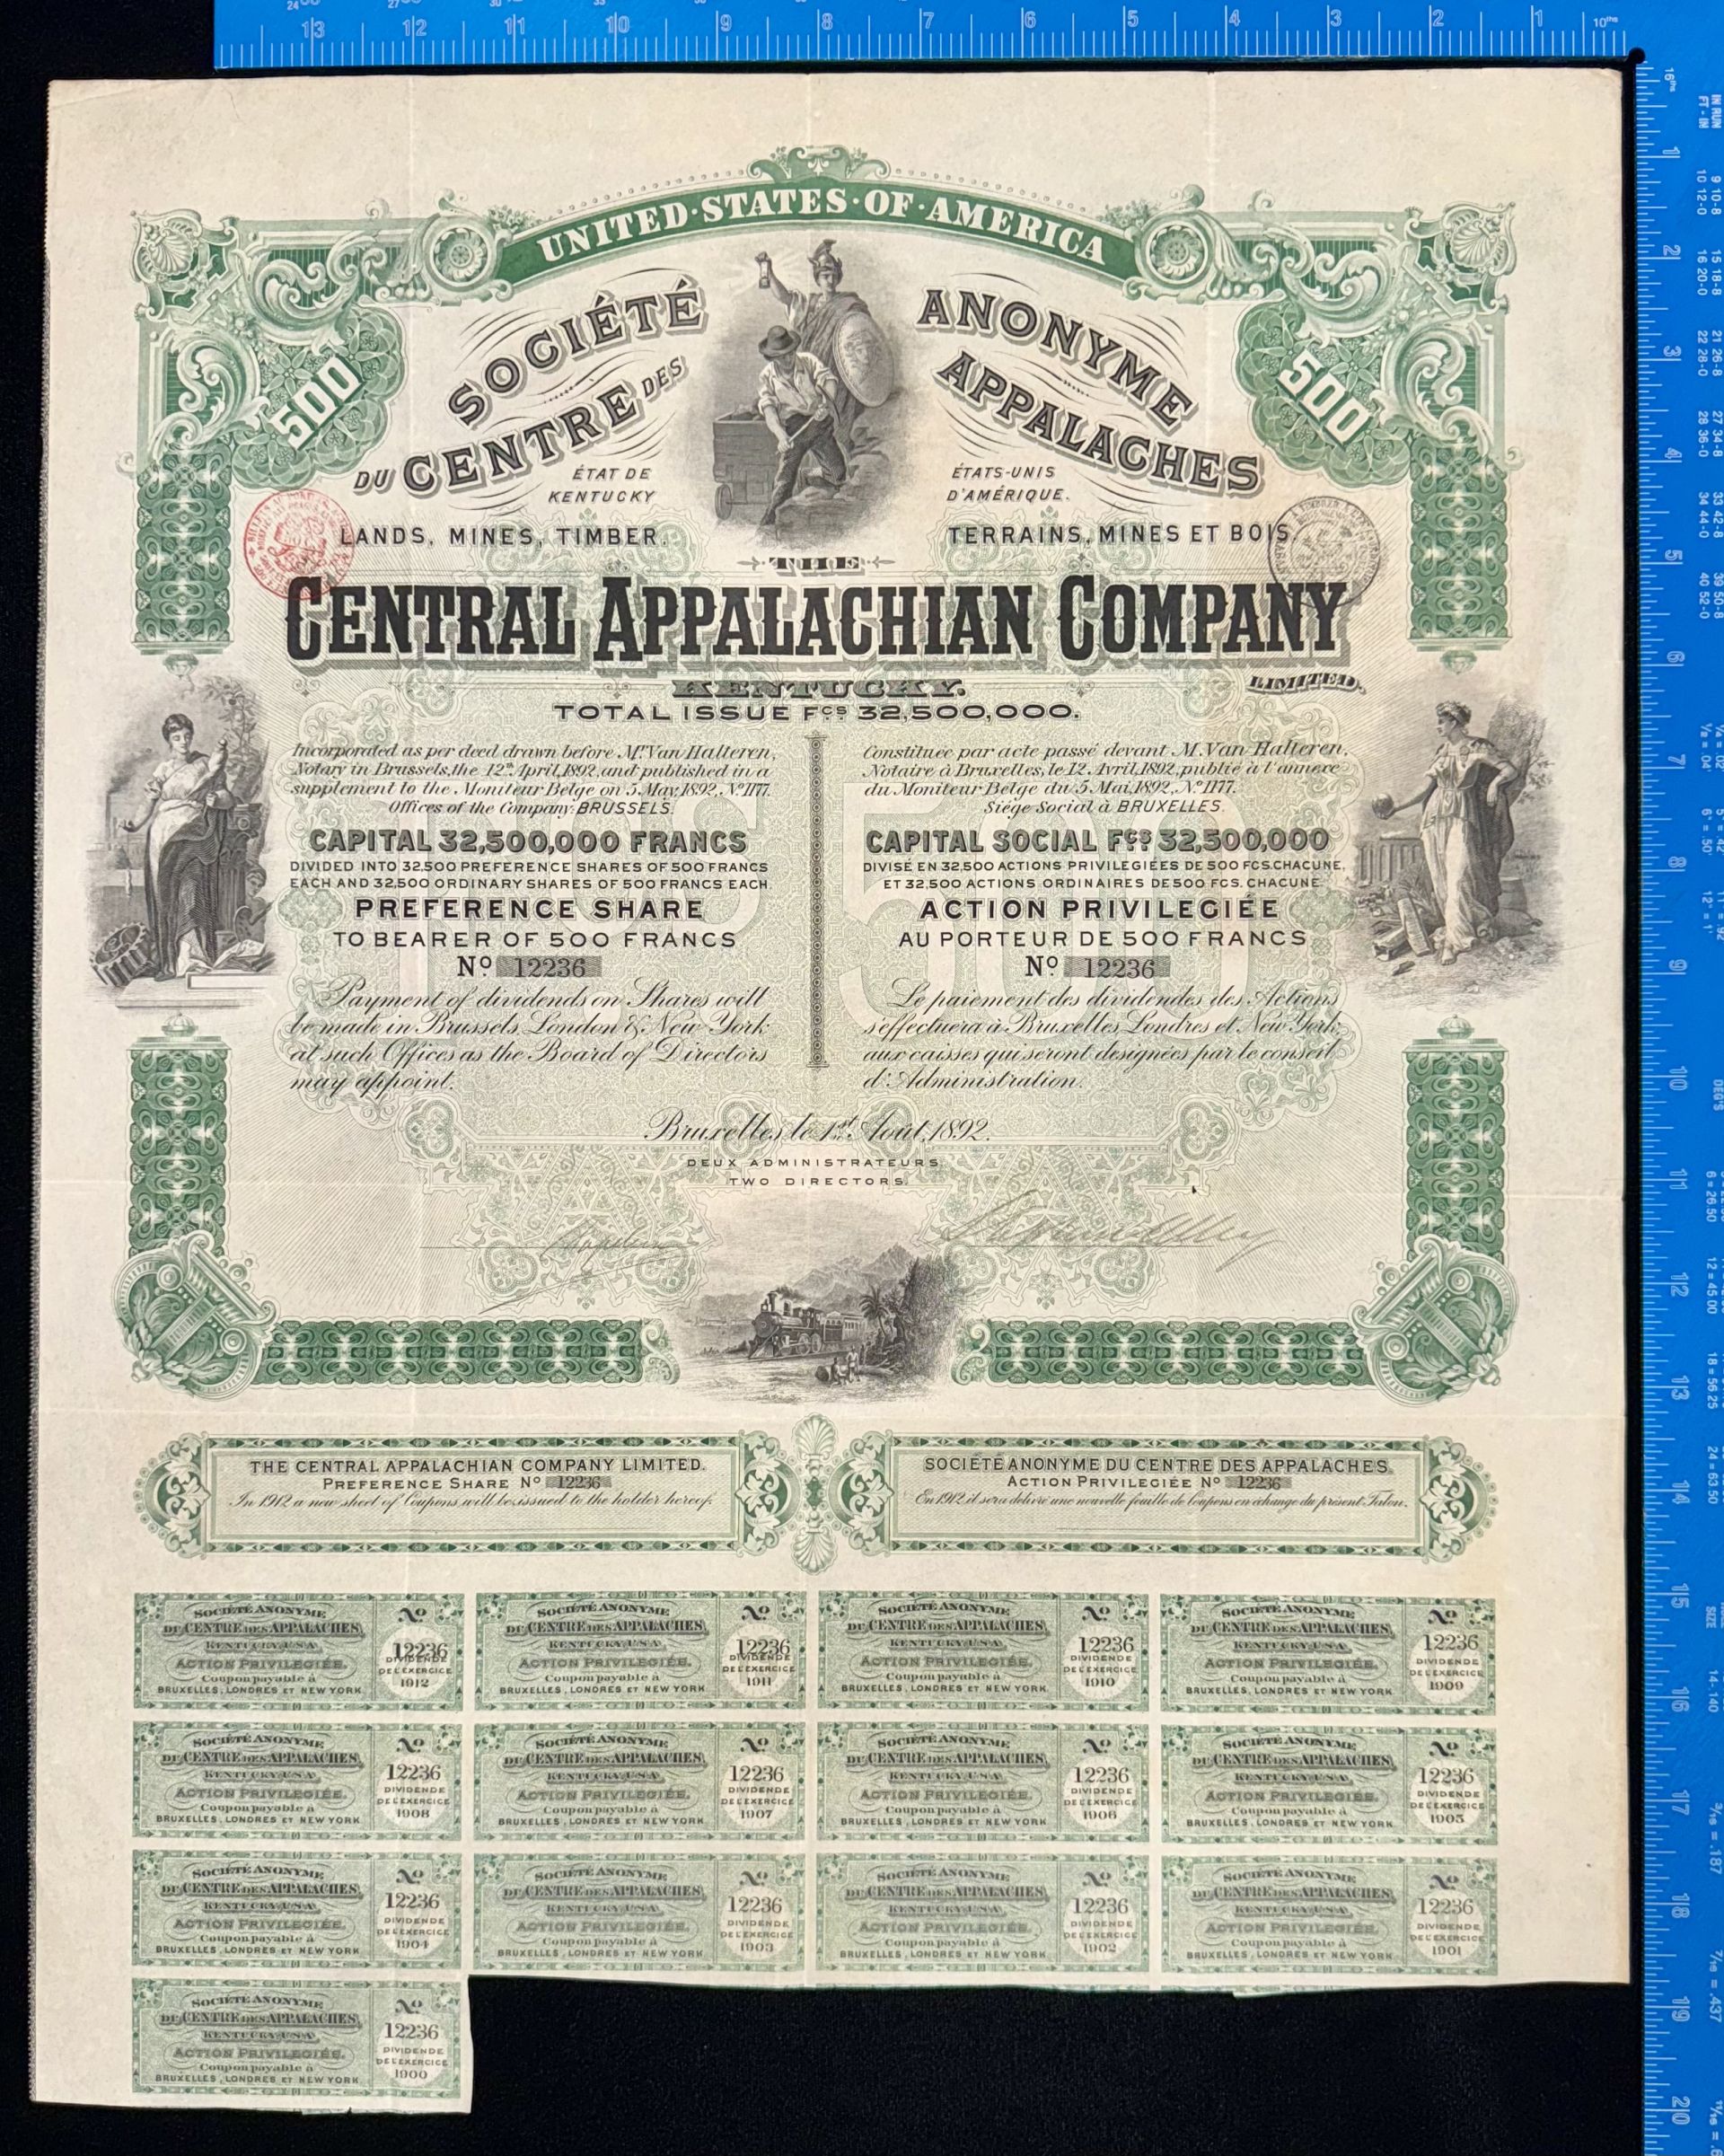 UNITED·STATES·OF·AMERICA
500
500
SOCIÉTÉ ANONYME
DU CENTRE DES APPALACHES
ÉTAT DE KENTUCKY
ÉTATS-UNIS D'AMÉRIQUE.
LANDS, MINES, TIMBER.
TERRAINS, MINES ET BOIS.
THE
CENTRAL APPALACHIAN COMPANY
LIMITED.
KENTUCKY.
TOTAL ISSUE FCS 32,500,000.
Incorporated as per deed drawn before Mr. Van Halteren,
Notary in Brussels, the 12th April, 1892, and published in a
supplement to the Moniteur Belge on 5 May, 1892, No 1177.
Offices of the Company: BRUSSELS.
CAPITAL 32,500,000 FRANCS
DIVIDED INTO 32,500 PREFERENCE SHARES OF 500 FRANCS
EACH AND 32,500 ORDINARY SHARES OF 500 FRANCS EACH.
PREFERENCE SHARE
TO BEARER OF 500 FRANCS
No 12236
Payment of dividends on Shares will
be made in Brussels, London & New York
at such Offices as the Board of Directors
may appoint.
Constituée par acte passé devant M. Van Halteren,
Notaire à Bruxelles, le 12 Avril, 1892, publié à l'annexe
du Moniteur Belge du 5 Mai, 1892, No 1177.
Siége Social à BRUXELLES.
CAPITAL SOCIAL FCS 32,500,000
DIVISÉ EN 32,500 ACTIONS PRIVILEGIÉES DE 500 FCS. CHACUNE,
ET 32,500 ACTIONS ORDINAIRES DE 500 FCS. CHACUNE.
ACTION PRIVILEGIÉE
AU PORTEUR DE 500 FRANCS
No 12236
Le paiement des dividendes des Actions
s'effectuera à Bruxelles, Londres et New York,
aux caisses qui seront designées par le conseil
d'Administration.
Bruxelles, le 1st Aout, 1892.
DEUX ADMINISTRATEURS.
TWO DIRECTORS.
THE CENTRAL APPALACHIAN COMPANY LIMITED.
PREFERENCE SHARE No 12236
In 1912 a new sheet of Coupons will be issued to the holder hereof.
SOCIÉTÉ ANONYME DU CENTRE DES APPALACHES.
ACTION PRIVILEGIÉE No 12236
En 1912 il sera délivré une nouvelle feuille de coupons en échange du présent Talon.
SOCIÉTÉ ANONYME
DU CENTRE DES APPALACHES
KENTUCKY, U.S.A.
ACTION PRIVILEGIÉE.
Coupon payable à
BRUXELLES, LONDRES ET NEW YORK
No
12236
DIVIDENDE
DE L'EXERCICE
1912
SOCIÉTÉ ANONYME
DU CENTRE DES APPALACHES
KENTUCKY, U.S.A.
ACTION PRIVILEGIÉE.
Coupon payable à
BRUXELLES, LONDRES ET NEW YORK
No
12236
DIVIDENDE
DE L'EXERCICE
1911
SOCIÉTÉ ANONYME
DU CENTRE DES APPALACHES
KENTUCKY, U.S.A.
ACTION PRIVILEGIÉE.
Coupon payable à
BRUXELLES, LONDRES ET NEW YORK
No
12236
DIVIDENDE
DE L'EXERCICE
1910
SOCIÉTÉ ANONYME
DU CENTRE DES APPALACHES
KENTUCKY, U.S.A.
ACTION PRIVILEGIÉE.
Coupon payable à
BRUXELLES, LONDRES ET NEW YORK
No
12236
DIVIDENDE
DE L'EXERCICE
1909
SOCIÉTÉ ANONYME
DU CENTRE DES APPALACHES
KENTUCKY, U.S.A.
ACTION PRIVILEGIÉE.
Coupon payable à
BRUXELLES, LONDRES ET NEW YORK
No
12236
DIVIDENDE
DE L'EXERCICE
1908
SOCIÉTÉ ANONYME
DU CENTRE DES APPALACHES
KENTUCKY, U.S.A.
ACTION PRIVILEGIÉE.
Coupon payable à
BRUXELLES, LONDRES ET NEW YORK
No
12236
DIVIDENDE
DE L'EXERCICE
1907
SOCIÉTÉ ANONYME
DU CENTRE DES APPALACHES
KENTUCKY, U.S.A.
ACTION PRIVILEGIÉE.
Coupon payable à
BRUXELLES, LONDRES ET NEW YORK
No
12236
DIVIDENDE
DE L'EXERCICE
1906
SOCIÉTÉ ANONYME
DU CENTRE DES APPALACHES
KENTUCKY, U.S.A.
ACTION PRIVILEGIÉE.
Coupon payable à
BRUXELLES, LONDRES ET NEW YORK
No
12236
DIVIDENDE
DE L'EXERCICE
1905
SOCIÉTÉ ANONYME
DU CENTRE DES APPALACHES
KENTUCKY, U.S.A.
ACTION PRIVILEGIÉE.
Coupon payable à
BRUXELLES, LONDRES ET NEW YORK
No
12236
DIVIDENDE
DE L'EXERCICE
1904
SOCIÉTÉ ANONYME
DU CENTRE DES APPALACHES
KENTUCKY, U.S.A.
ACTION PRIVILEGIÉE.
Coupon payable à
BRUXELLES, LONDRES ET NEW YORK
No
12236
DIVIDENDE
DE L'EXERCICE
1903
SOCIÉTÉ ANONYME
DU CENTRE DES APPALACHES
KENTUCKY, U.S.A.
ACTION PRIVILEGIÉE.
Coupon payable à
BRUXELLES, LONDRES ET NEW YORK
No
12236
DIVIDENDE
DE L'EXERCICE
1902
SOCIÉTÉ ANONYME
DU CENTRE DES APPALACHES
KENTUCKY, U.S.A.
ACTION PRIVILEGIÉE.
Coupon payable à
BRUXELLES, LONDRES ET NEW YORK
No
12236
DIVIDENDE
DE L'EXERCICE
1901
SOCIÉTÉ ANONYME
DU CENTRE DES APPALACHES
KENTUCKY, U.S.A.
ACTION PRIVILEGIÉE.
Coupon payable à
BRUXELLES, LONDRES ET NEW YORK
No
12236
DIVIDENDE
DE L'EXERCICE
1900
13 12 11 10 9 8 7 6 5 4 3 2 1
10ths
16ths
1
2
3
4
5
6
7
8
9
10
11
12
13
14
15
16
17
18
19
20